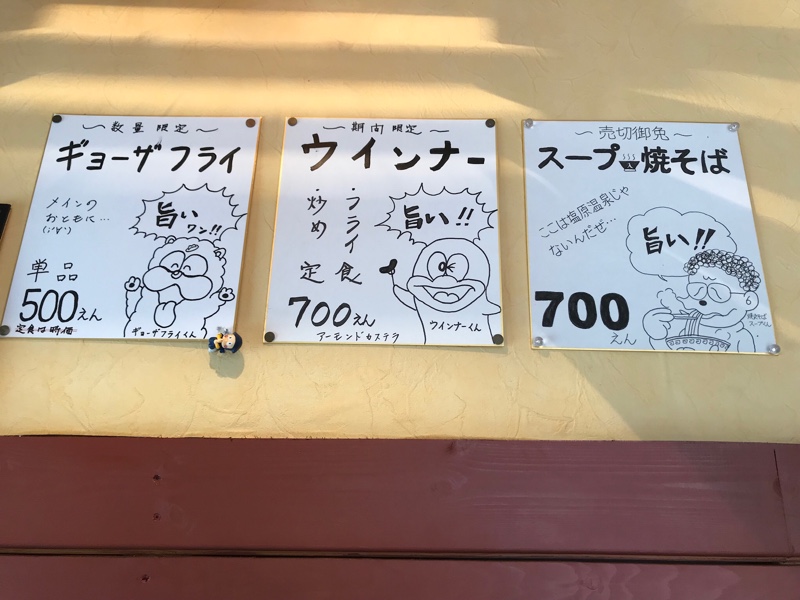 〜数量限定〜
ギョーザフライ
メインの
おともに…
旨い
ワン!!
単品
500えん
定食は時価
ギョーザフライくん
〜期間限定〜
ウインナー
・フライ
・炒め
定食
旨い!!
700えん
ウインナーくん
アーモンドカステラ
〜売切御免〜
スープ焼そば
ここは塩原温泉じゃ
ないんだぜ…
旨い!!
700
えん
焼そば
スープくん